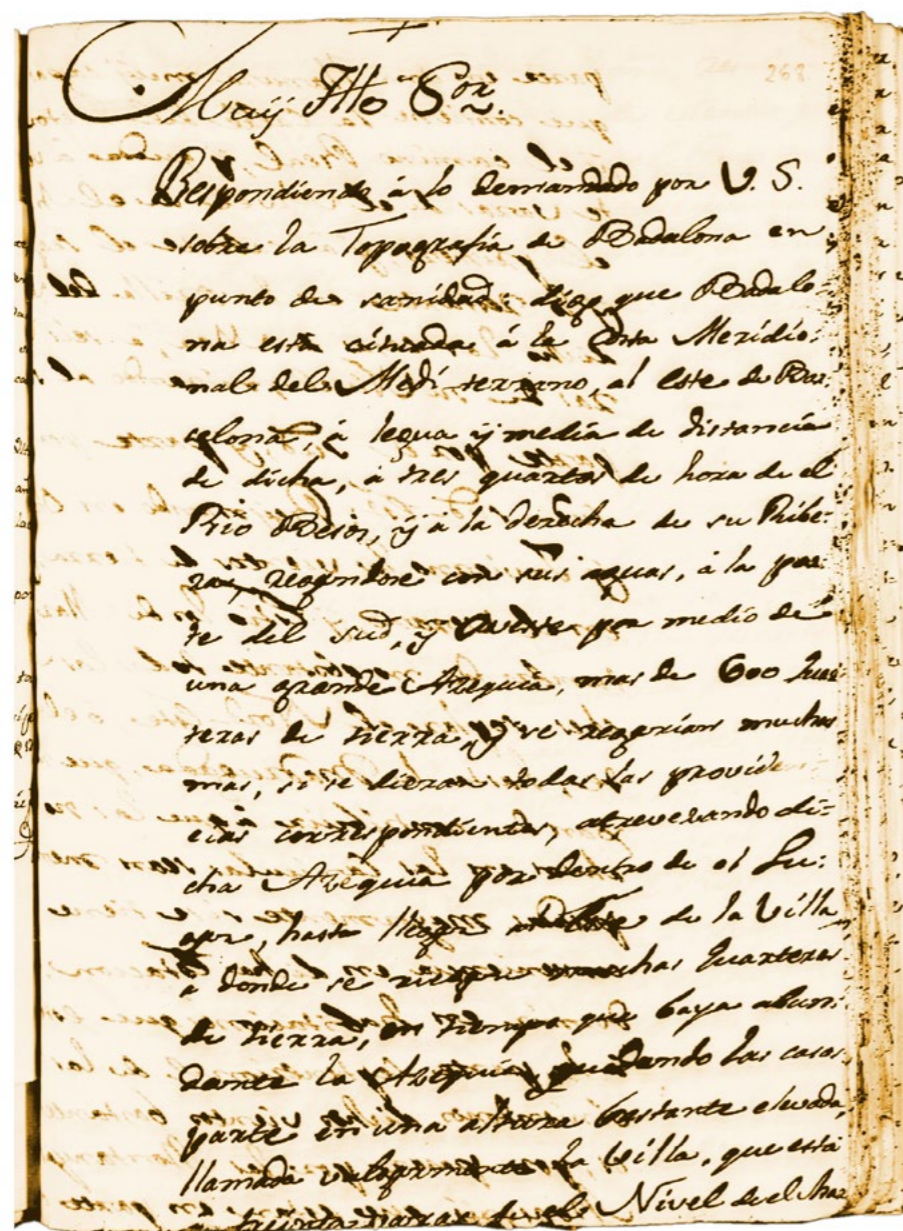 268
Muy Iltre Sor.
Respondiendo à lo demandado por V. S.
sobre la Topografía de Badalona en
punto de sanidad: digo que Badalo-
na está cituada à la Costa Meridio-
nal del Mediterrano, al Este de Bar-
celona, à legua y media de distancia
de dicha, à tres quartos de hora de el
Rio Besos, y à la derecha de su Ribe-
ra, regandose con sus aguas, à la par-
te del sud, y Oueste por medio de
una grande Azequia, mas de 600 Quar-
teras de tierra, y se regarian muchas
mas, si se dieran todas las providen-
cias correspondientes, atrevesando di-
cha Azequia por dentro de el Lu-
gar, hasta llegar al Este de la Villa
a donde se riegan muchas Quarteras
de tierra, en tiempo que baya abun-
dante la Azequia, quedando las casas
parte en una altura bastante elevada,
llamada vulgarmente la Villa, que está
treinta varas de el Nivel de el Mar